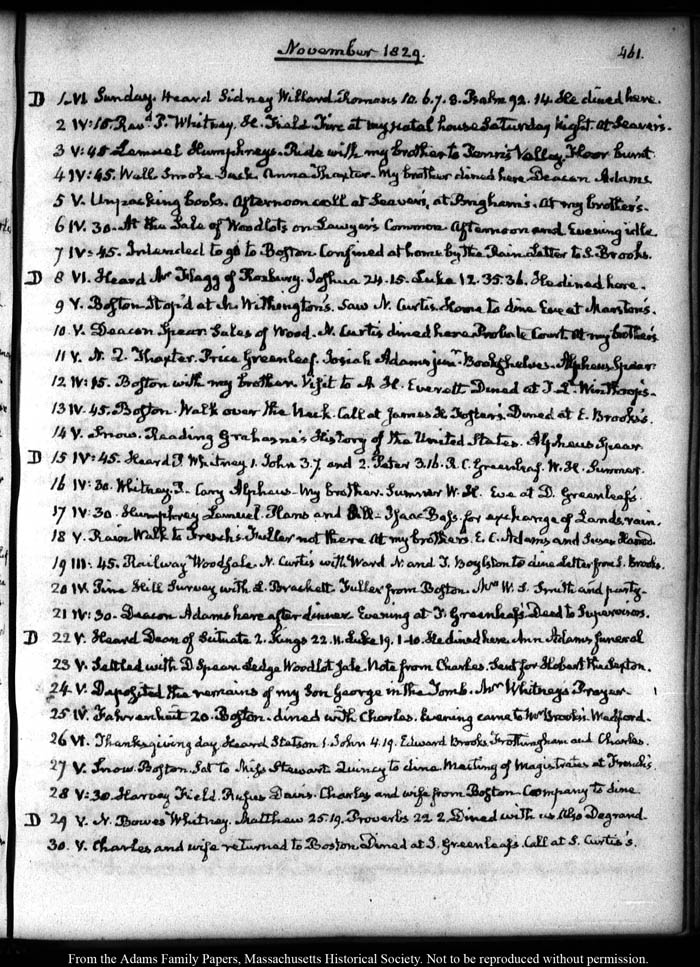 November 1829.
461.
D 1. VI Sunday. Heard Sidney Willard Romans 10. 6. 7. 8. Psalm 92. 14. He dined here.
2 IV:15. Revd. P. Whitney. H. Field Fire at my natal house Saturday Night. At Seaver's.
3 V:45 Lemuel Humphreys. Ride with my brother to Penn's Valley. Floor burnt
4 IV:45. Wall Smoke Jack. Anna Thaxter. My brother dined here. Deacon Adams
5 V. Unpacking books. Afternoon call at Seaver's, at Brigham's. At my brother's.
6 IV. 30. At the Sale of Woodlots on Lawyer's Common Afternoon and Evening idle
7 IV:45. Intended to go to Boston Confined at home by the Rain Letter to S. Brooks.
D 8 VI. Heard Mr Flagg of Roxbury. Joshua 24. 15. Luke 12. 35. 36. He dined here.
9 V. Boston Stop'd at Mr Withington's. Saw N. Curtis. Home to dine Eve at Marston's.
10. V. Deacon Spear Sales of Wood. N. Curtis dined here Probate Court At my brother's
11 V. N. L. Thaxter. Price Greenleaf. Josiah Adams junr. Bookshelves. Alpheus Spear
12 IV:15. Boston with my brother Visit to A H. Everett Dined at T. L. Winthrop's.
13 IV. 45. Boston. Walk over the Neck. Call at James H Foster's Dined at E. Brooks's.
14 V. Snow. Reading Grahame's History of the United States. Alpheus Spear
D 15 IV:45. Heard P. Whitney 1. John 3. 7 and 2. Peter 3. 16. R. C. Greenleaf. W. H. Sumner.
16 IV:30. Whitney. P. Cary Alpheus. My brother. Sumner W. H. Eve at D. Greenleaf's
17 IV. 30. Humphrey Lemuel. Plans and Bill. Isaac Bass. for exchange of Lands. rain.
18 V. Rain Walk to French's. Fuller not there At my brother's. E. C. Adams and Susan
19 III:45. Railway Woodsale. N. Curtis with Ward N. and T. Boylston to dine Letter from S. Brooks.
20 IV. Pine Hill Survey with L. Brackett. Fuller from Boston. Mrs W. S. Smith and party.
21 IV:30. Deacon Adams here after dinner. Evening at T. Greenleaf's. Deed to Supervisors.
D 22 V. Heard Dean of Scituate 2. Kings 22. 11. Luke 19. 1-10. He dined here. Ann Adams funeral
23 V. Settled with D. Spear. Ledge Woodlot Sale. Note from Charles. Sent for Hobart the Sexton.
24. V. Deposited the remains of my Son George in the Tomb. Mr Whitney's Prayer
25 IV. Fahrenheit 20. Boston. dined with Charles. Evening came to Mr Brooks's Medford.
26 VI. Thanksgiving day. Heard Stetson 1. John 4. 19. Edward Brooks. Frothingham and Charles.
27 V. Snow. Boston. Sat to Miss Stewart. Quincy to dine. Meeting of Magistrates at French's
28 V:30. Harvey Field. Rufus Davis. Charles and wife from Boston. Company to dine.
D 29 V. N. Bowes Whitney. Matthew 25. 19. Proverbs 22. 2. Dined with us Also Degrand.
30. V. Charles and wife returned to Boston. Dined at T. Greenleaf's. Call at S. Curtis's.
From the Adams Family Papers, Massachusetts Historical Society. Not to be reproduced without permission.